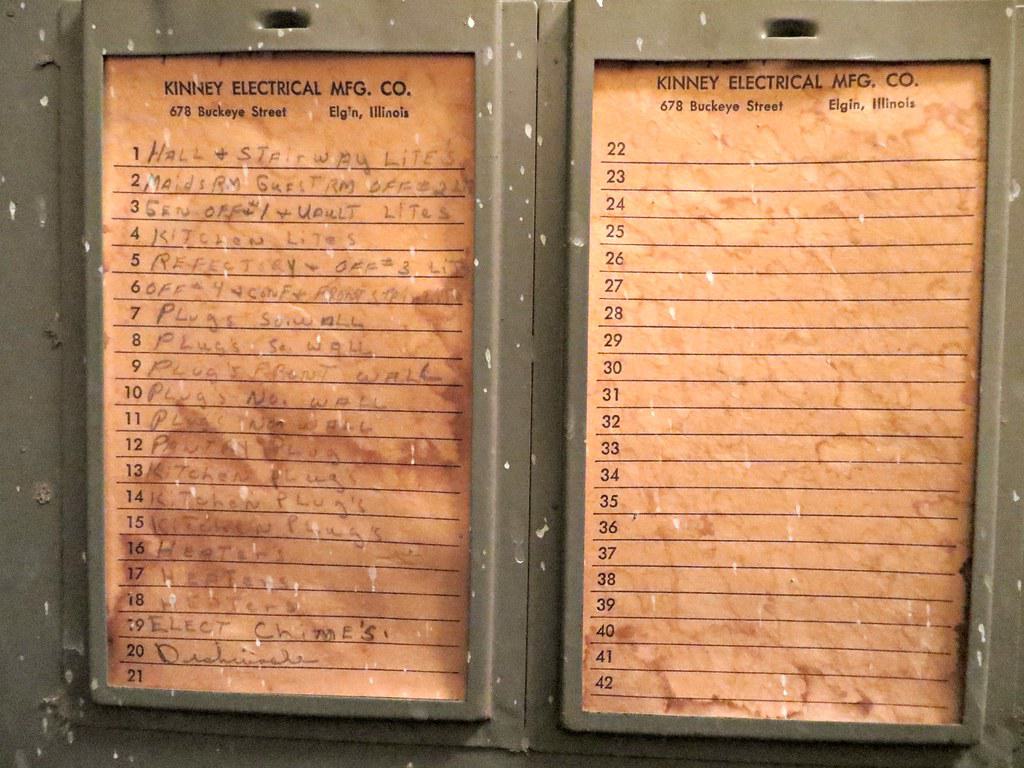 KINNEY ELECTRICAL MFG. CO.
678 Buckeye Street Elgin, Illinois
1 HALL + STAIRWAY LITE'S
2 MAIDS RM GUEST RM OFF #2
3 GEN OFF #1 + VAULT LITES
4 KITCHEN LITES
5 REFECTORY + OFF #3 LIT
6 OFF #4 + CONF +
7 PLugs So. WALL
8 PLugs So. WALL
9 PLug's FRONT WALL
10 PLugs No. WALL
11 PLugs No. WALL
12 PANTRY PLug
13 KiTchen PLug
14 KiTchen PLug's
15 KITCHEN PLug's
16 HEATERS
17 HEATERS
18 HEATERS
19 ELECT CHIME'S.
20
21
KINNEY ELECTRICAL MFG. CO.
678 Buckeye Street Elgin, Illinois
22
23
24
25
26
27
28
29
30
31
32
33
34
35
36
37
38
39
40
41
42